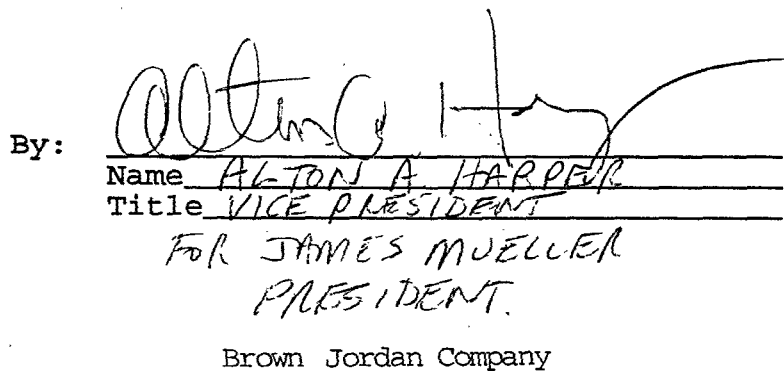 By: Alton A. Harper
Name ALTON A HARPER
Title VICE PRESIDENT
FOR JAMES MUELLER
PRESIDENT.
Brown Jordan Company